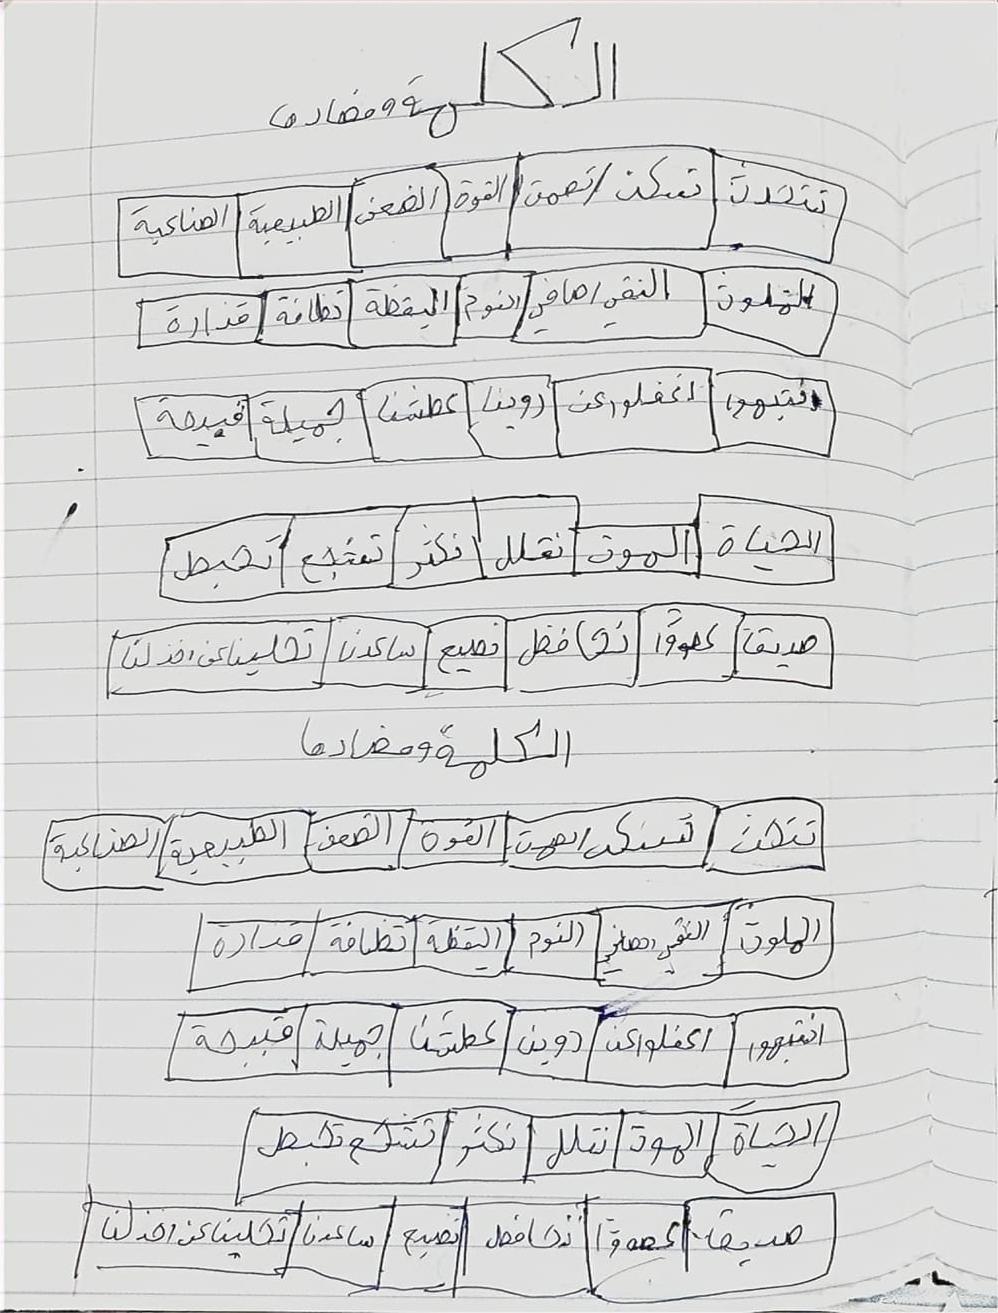 الكلمة ومضادها
تتحدث تسكت / تصمت القوة الضعف الطبيعية الصناعية
الملوث النقي / صافي النوم اليقظة نظافة قذارة
انتبهوا اغفلوا عن روينا عطشنا جميلة قبيحة
الحياة الموت نقلل نكثر تشجع تحبط
صديقا عدوًا نحافظ نضيع ساعدنا تخلينا عن / خذلنا
الكلمة ومضادها
تتحدث تسكت / تصمت القوة الضعف الطبيعية الصناعية
الملوث النقي / صافي النوم اليقظة نظافة قذارة
انتبهوا اغفلوا عن روينا عطشنا جميلة قبيحة
الحياة الموت نقلل نكثر تشجع تحبط
صديقا عدوًا نحافظ نضيع ساعدنا تخلينا عن / خذلنا